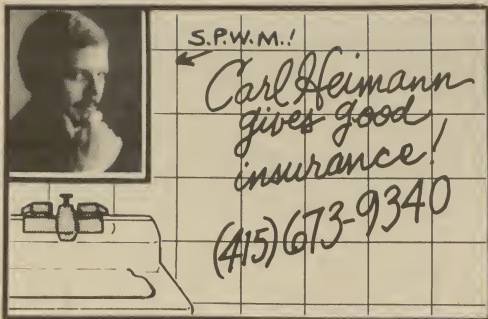 S.P.W.M.!
Carl Heimann
gives good
insurance!
(415)673-9340